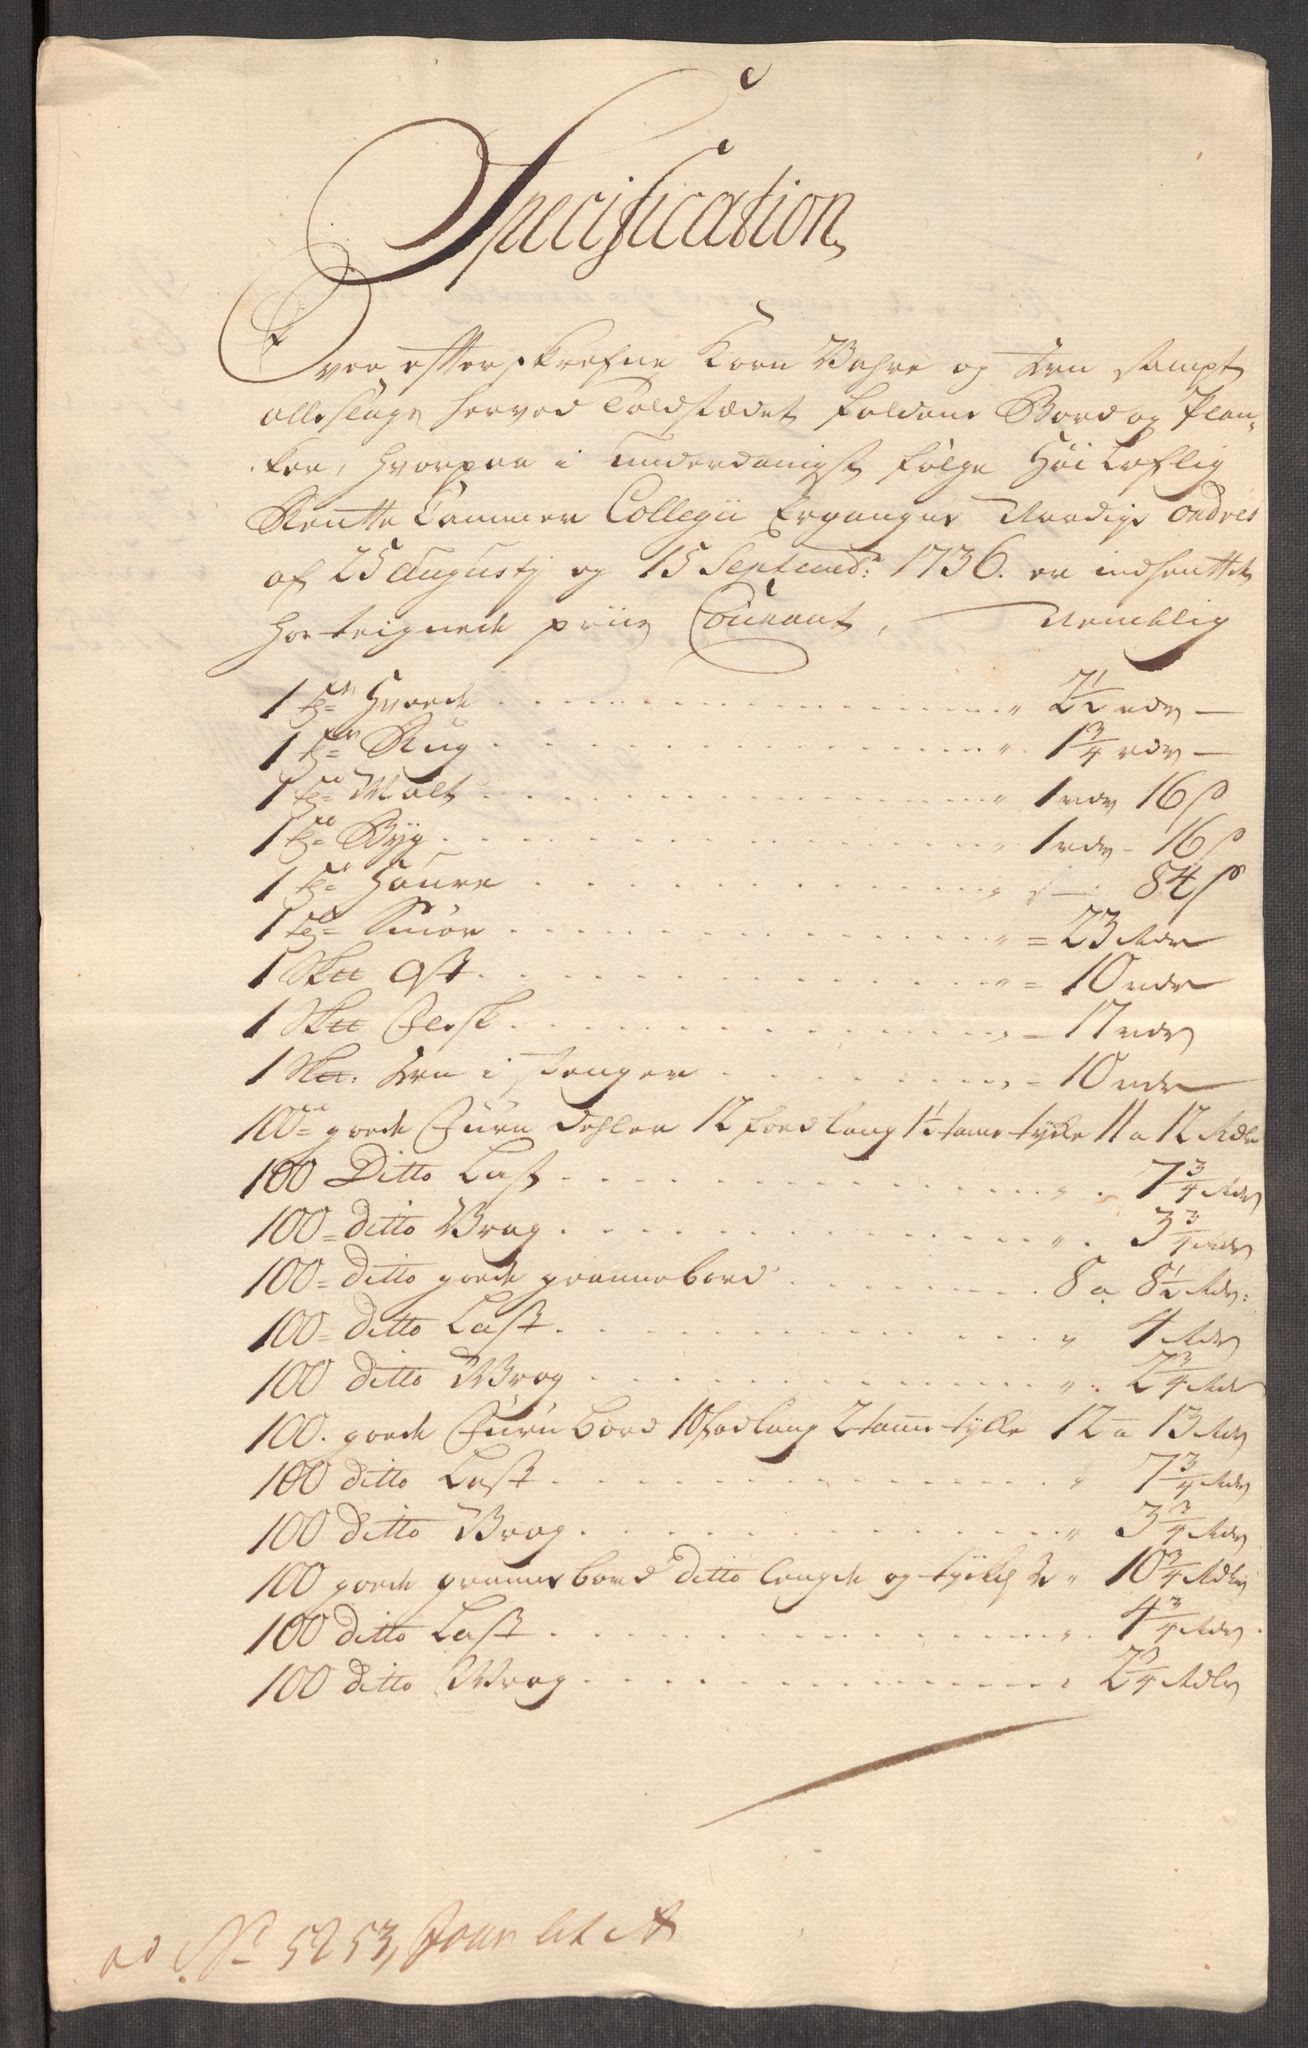 Specification
Over efterskrefne Korn Vahre og Jern sampt
alle slags herved Toldstædet faldene Bord og Plan-
ker, hvorpaa i underdanigst følge Høi Loflig
Rentte Cammer Collegii Ergangne Naadige Ordres
af 25 Augusti og 15 Septembr: 1736. er indhenttet
hostegnede priis Courant, Nemblig
1 tø Hvede " 2½ rdr —
1 tø Rug " 1¾ rdr —
1 tø Malt " 1 rdr 16 ß
1 tø Byg " 1 rdr - 16 ß
1 tø Haure " — 84 ß
1 tø Smør " = 23 Rdr
1 Sk Ost " = 10 rdr
1 Sk Flesk " = 17 rdr
1 Sk. Jern i stenger " = 10 rdr
100 goede Furu Dehler 12 foed lang 1½ tome tycke 11 a 12 Rdlr
100 Ditto Last " . 7¾ Rdr
100 = ditto Vrag " . 3¾ rdr
100 = ditto goede grannebord 8 a 8½ Rdr:
100 = ditto Last " 4 Rdr
100 ditto Vrag " . 2¾ Rdr
100. goede Furu bord 10 fod lang 2 tome tykke 12 a 13 Rdr
100 ditto Last " 7¾ Rdr
100 ditto Vrag " 3¾ Rdr
100 goede granne bord ditto lengde og tykke " 10¾ Rdlr
100 ditto Last " . 4¾ Rdr.
100 ditto Vrag 2¾ Rdlr
ad No 5253, Jour lit A